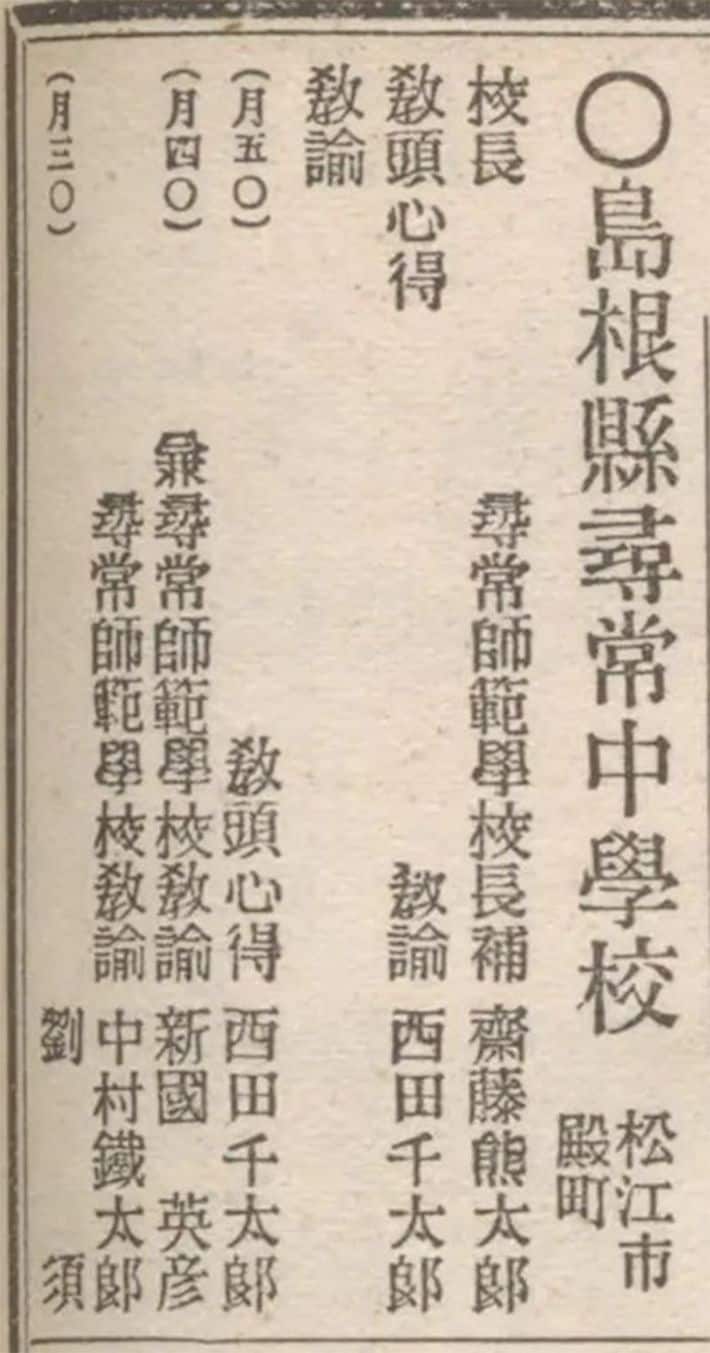 〇島根縣尋常中學校 松江市
殿町
校長 尋常師範學校長補 齋藤熊太郎
教頭心得 教諭 西田千太郎
教諭
（月五〇） 教頭心得 西田千太郎
（月四〇） 兼尋常師範學校教諭 新國英彦
尋常師範學校教諭 中村鐵太郎
（月三〇） 劉須